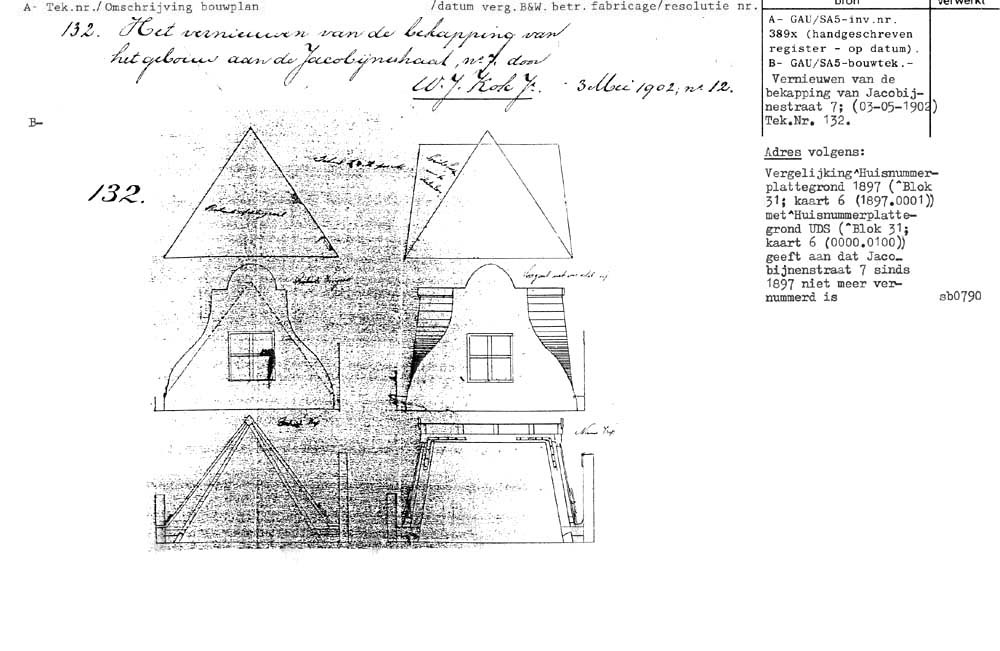 A- Tek.nr./Omschrijving bouwplan /datum verg.B&W. betr. fabricage/resolutie nr.
bron verwerkt
132. Het vernieuwen van de bekapping van
het gebouw aan de Jacobijnestraat, no 7. door
W. J. Kok Jr. - 3 Mei 1902, no 12.
A- GAU/SA5-inv.nr.
389x (handgeschreven
register - op datum).
B- GAU/SA5-bouwtek.-
Vernieuwen van de
bekapping van Jacobij-
nestraat 7; (03-05-1902)
Tek.Nr. 132.
B-
132.
Adres volgens:
Vergelijking^Huisnummer-
plattegrond 1897 (^Blok
31; kaart 6 (1897.0001))
met^Huisnummerplatte-
grond UDS (^Blok 31;
kaart 6 (0000.0100))
geeft aan dat Jaco_
bijnenstraat 7 sinds
1897 niet meer ver-
nummerd is
sb0790
Nieuwe Kap